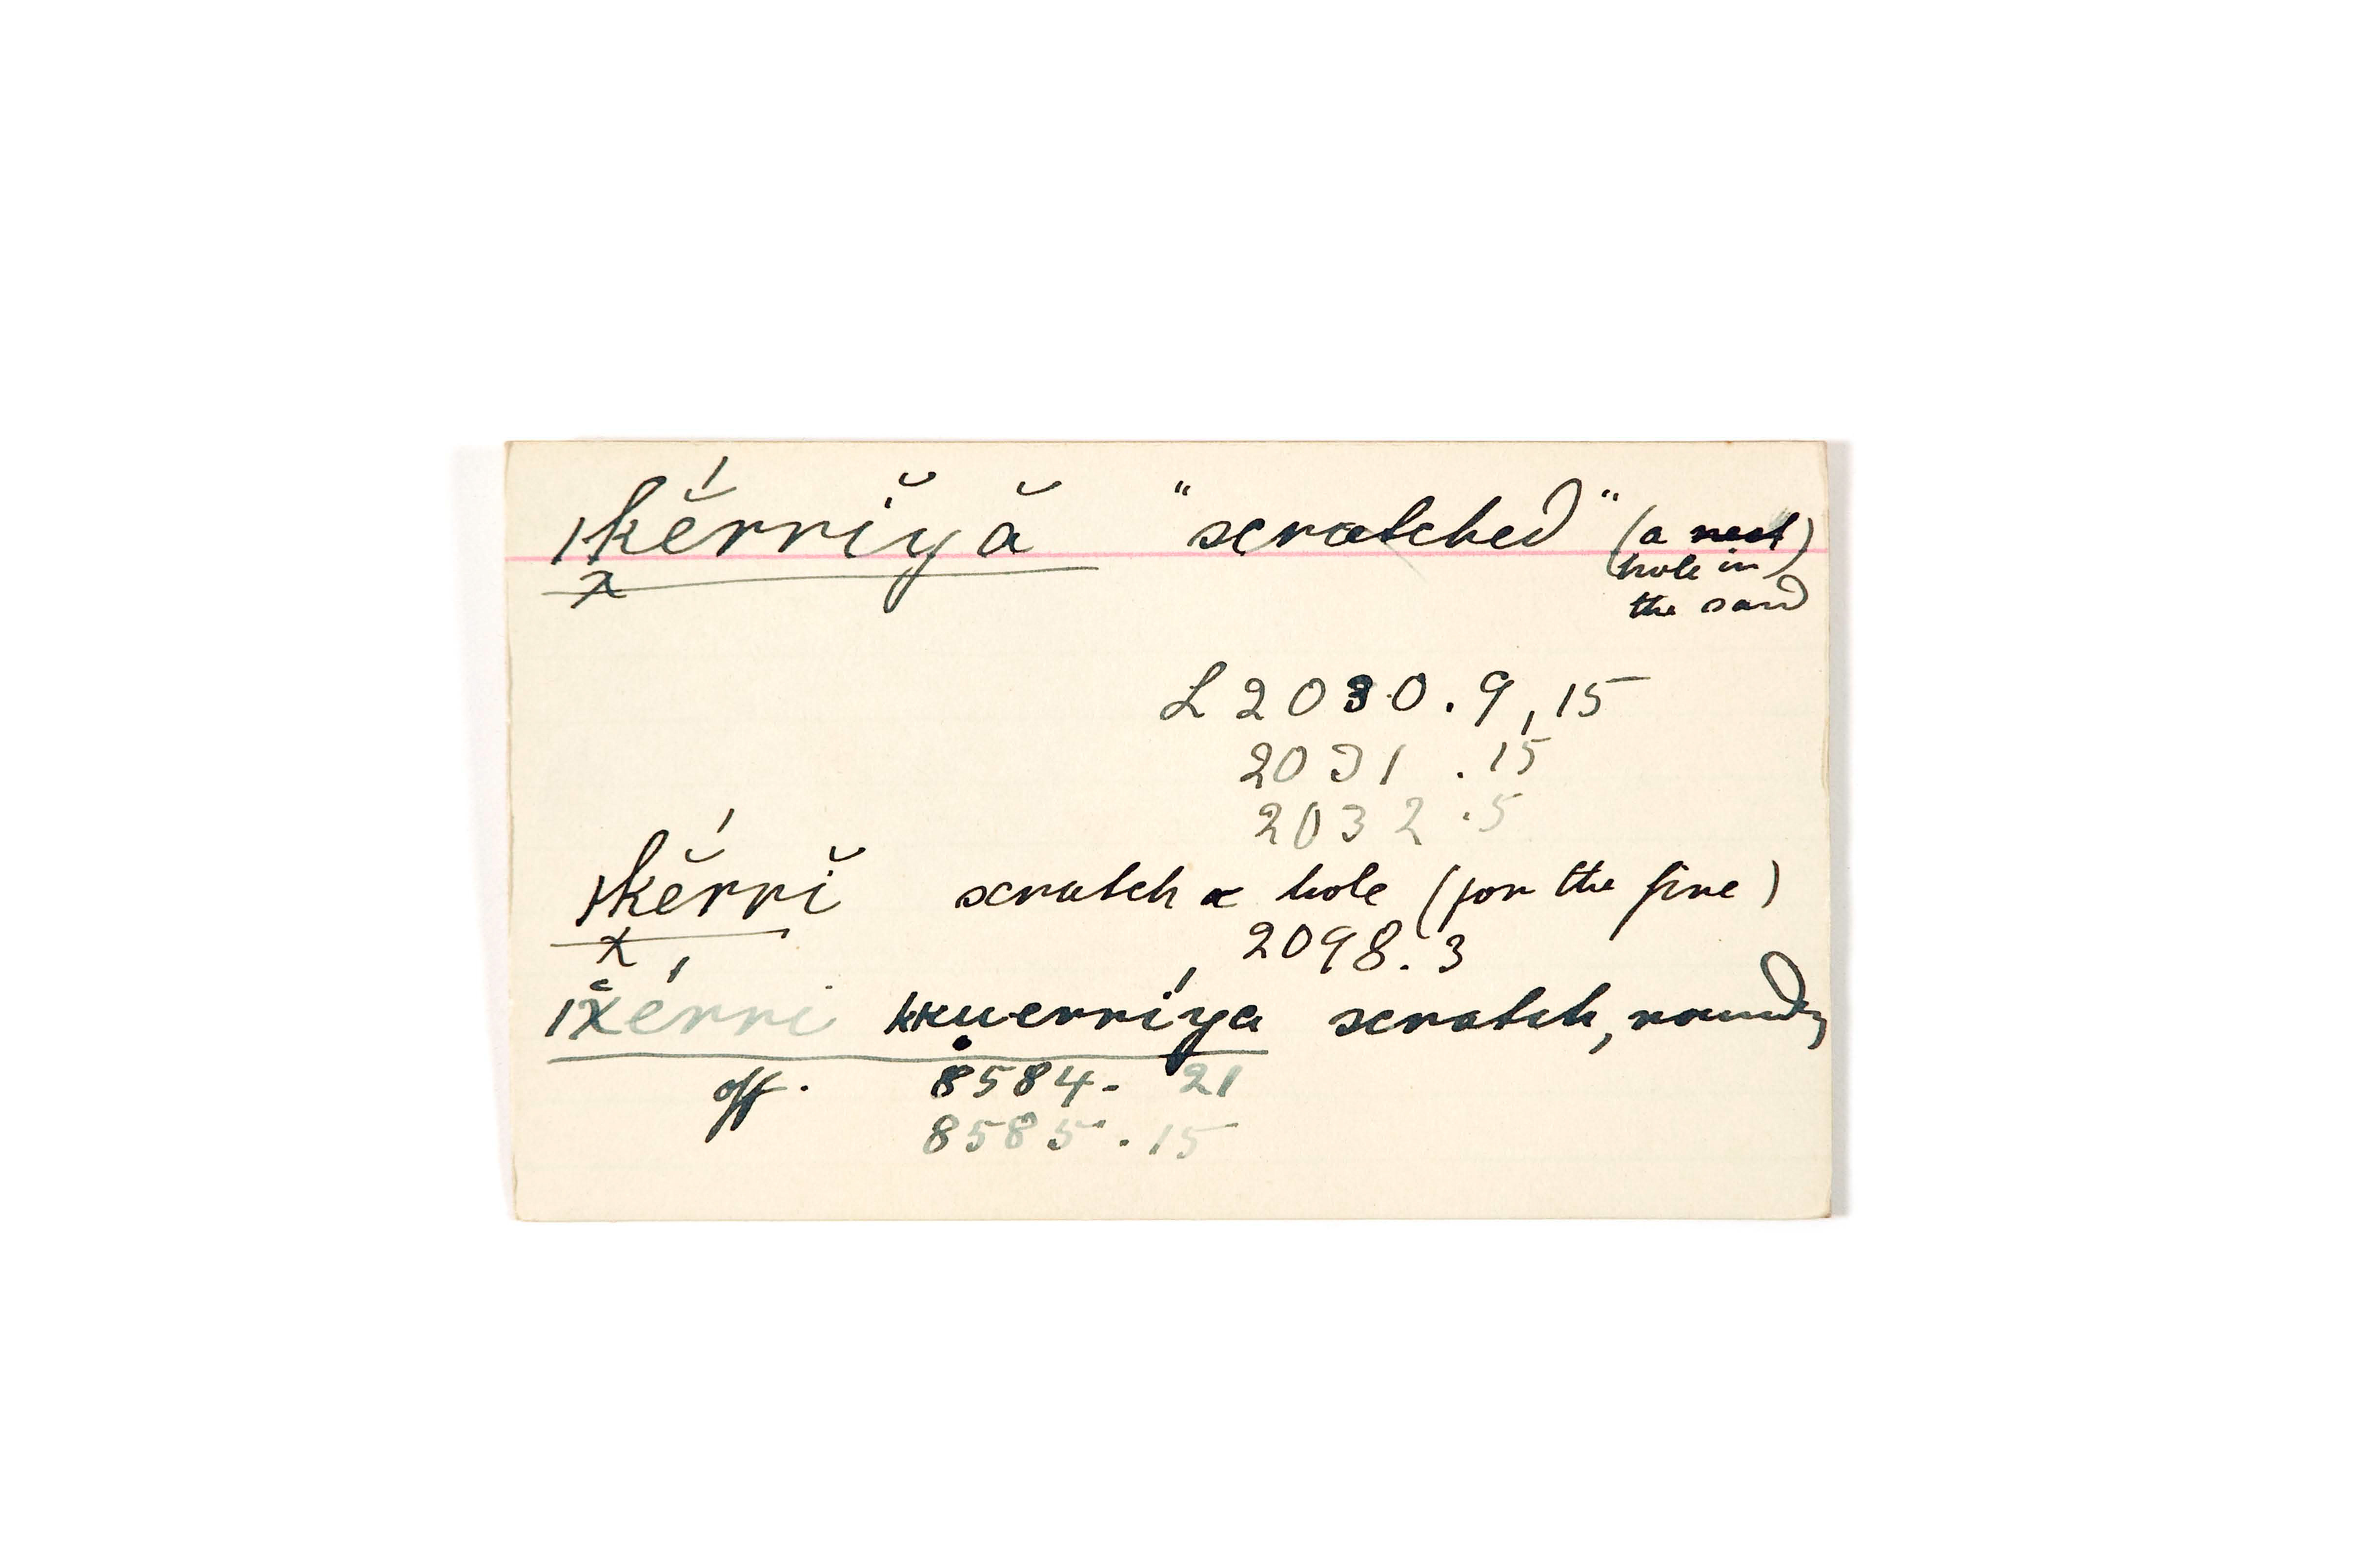 |kĕ́rrĭyă "scratched" (a nest)
x (hole in)
the sand
L 2030.9,15
2031 .15
2032 .5
|kĕ́rrĭ scratch a hole (for the fire)
x 2098.3
scratch, round,
off. 8584. 21
8585.15